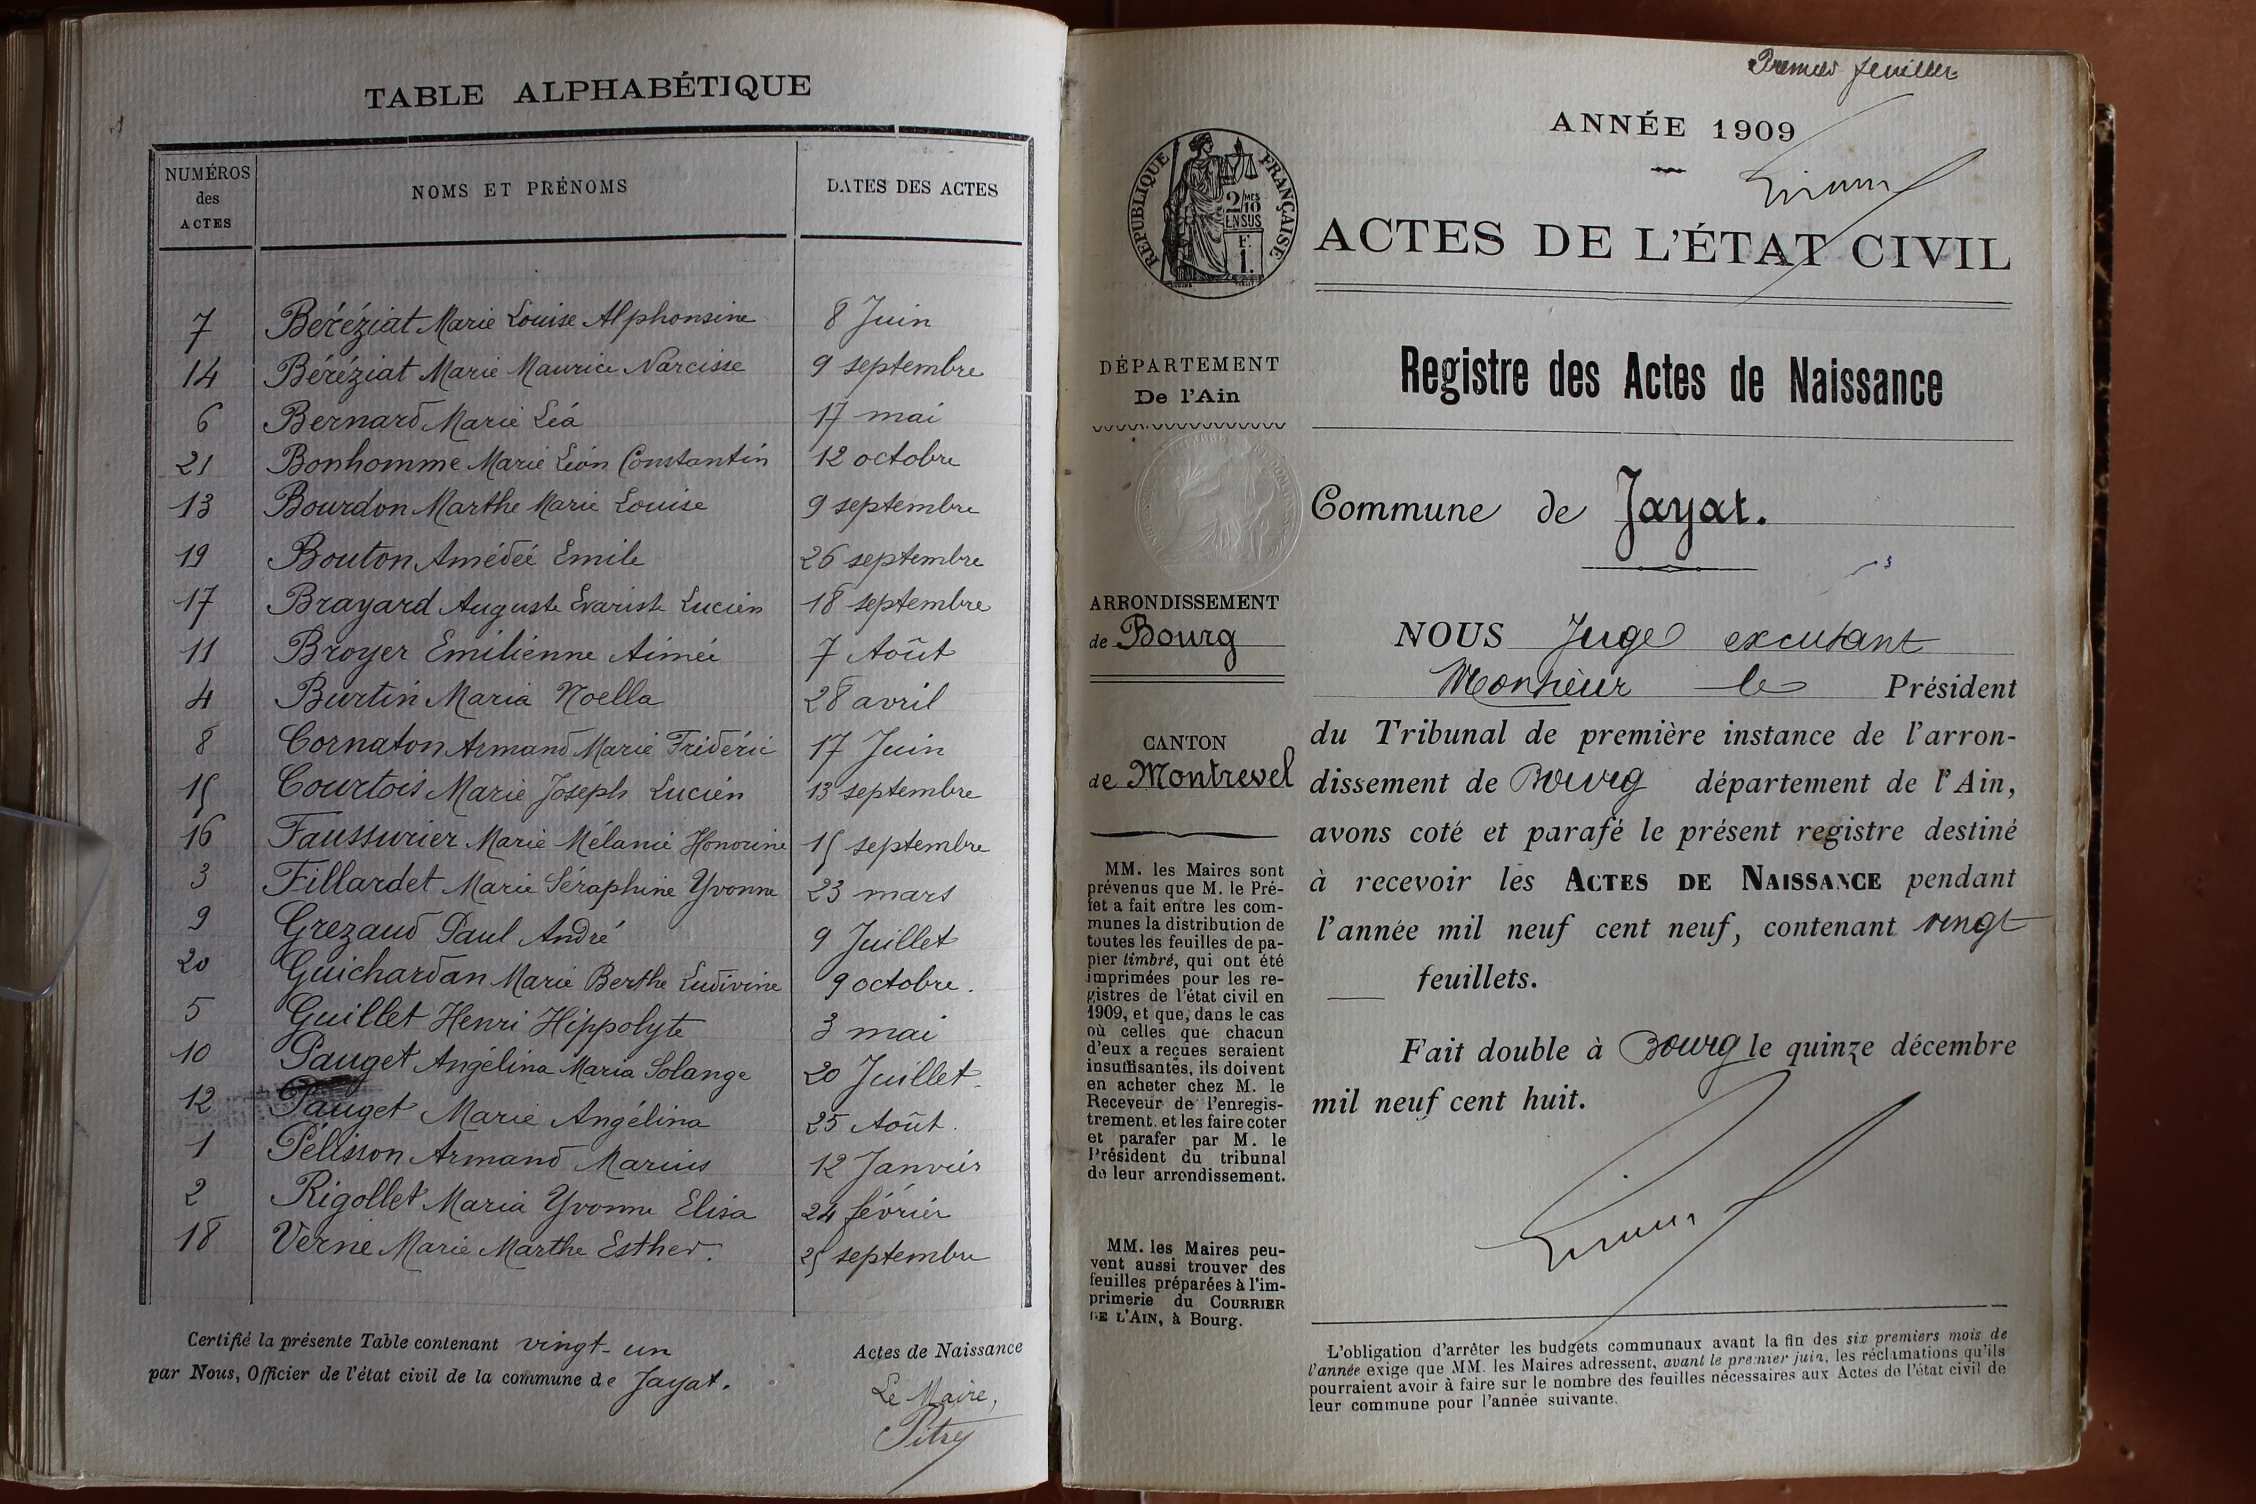 TABLE ALPHABÉTIQUE
NUMÉROS des ACTES
NOMS ET PRÉNOMS
DATES DES ACTES
7 Béréziat Marie Louise Alphonsine 8 Juin
14 Béréziat Marie Maurice Narcisse 9 septembre
6 Bernard Marie Léa 17 mai
21 Bonhomme Marie Léon Constantin 12 octobre
13 Bourdon Marthe Marie Louise 9 septembre
19 Bouton Amédée Emile 26 septembre
17 Brayard Auguste Evariste Lucien 18 septembre
11 Broyer Emilienne Aimée 7 Août
4 Burtin Maria Noella 28 avril
8 Cornaton Armand Marie Frédéric 17 Juin
15 Courtois Marie Joseph Lucien 13 septembre
16 Faussurier Marie Mélanie Honorine 15 septembre
3 Fillardet Marie Séraphine Yvonne 23 mars
9 Grezaud Paul André 9 Juillet
20 Guichardan Marie Berthe Ludivine 9 octobre.
5 Guillet Henri Hippolyte 3 mai
10 Pauget Angélina Maria Solange 20 Juillet.
12 Pauget Marie Angélina 25 Août.
1 Pélisson Armand Marius 12 Janvier
2 Rigollet Maria Yvonne Elisa 24 février
18 Verne Marie Marthe Esther. 25 septembre
Certifié la présente Table contenant vingt-un Actes de Naissance
par Nous, Officier de l'état civil de la commune de Jayat.
Le Maire,
Pitre
Premier feuillet
ANNÉE 1909
RÉPUBLIQUE FRANÇAISE
2/MES 10
EN SUS
F.
1.
ACTES DE L'ÉTAT CIVIL
DÉPARTEMENT
De l'Ain
Registre des Actes de Naissance
Commune de Jayat.
ARRONDISSEMENT
de Bourg
CANTON
de Montrevel
MM. les Maires sont
prévenus que M. le Pré-
fet a fait entre les com-
munes la distribution de
toutes les feuilles de pa-
pier timbré, qui ont été
imprimées pour les re-
gistres de l'état civil en
1909, et que, dans le cas
où celles que chacun
d'eux a reçues seraient
insuffisantes, ils doivent
en acheter chez M. le
Receveur de l'enregis-
trement. et les faire coter
et parafer par M. le
Président du tribunal
de leur arrondissement.
MM. les Maires peu-
vent aussi trouver des
feuilles préparées à l'im-
primerie du COURRIER
DE L'AIN, à Bourg.
NOUS Juge excusant
Monsieur le Président
du Tribunal de première instance de l'arron-
dissement de Bourg département de l'Ain,
avons coté et parafé le présent registre destiné
à recevoir les ACTES DE NAISSANCE pendant
l'année mil neuf cent neuf, contenant vingt
feuillets.
Fait double à Bourg le quinze décembre
mil neuf cent huit.
L'obligation d'arrêter les budgets communaux avant la fin des six premiers mois de
l'année exige que MM. les Maires adressent, avant le premier juin, les réclamations qu'ils
pourraient avoir à faire sur le nombre des feuilles nécessaires aux Actes de l'état civil de
leur commune pour l'année suivante.